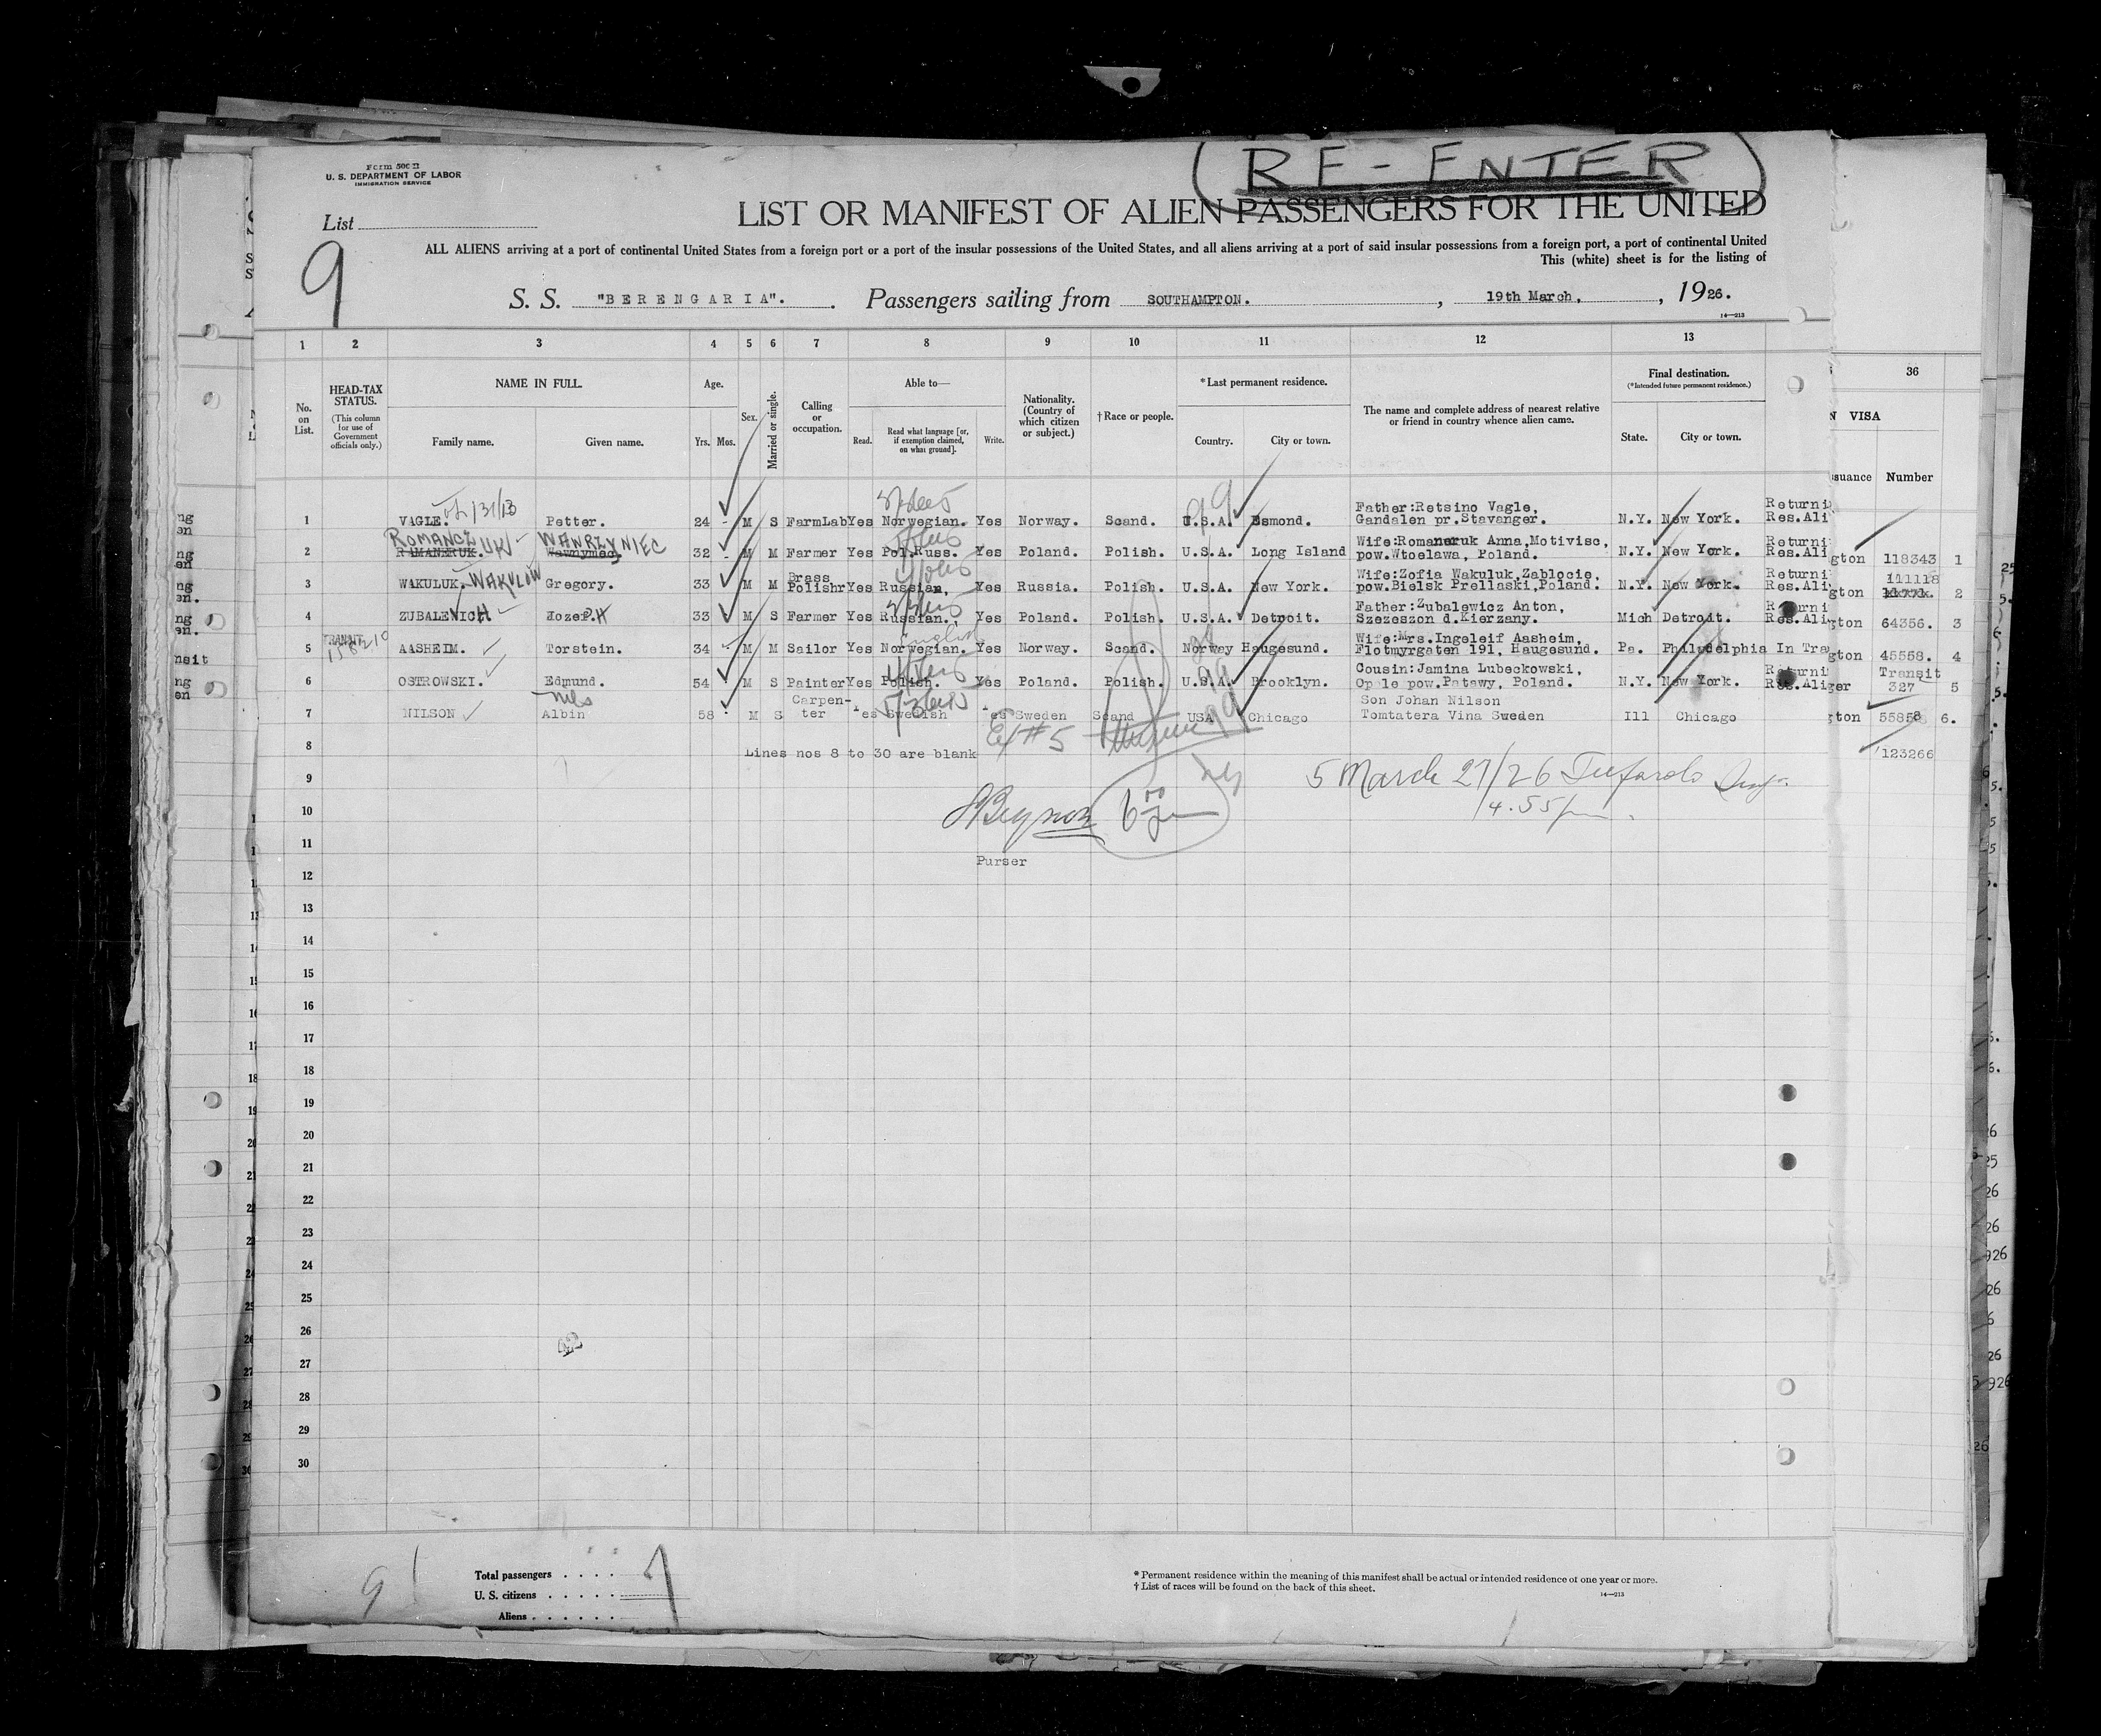 RE-ENTER
Form 500 II
U. S. DEPARTMENT OF LABOR
IMMIGRATION SERVICE
List
9
LIST OR MANIFEST OF ALIEN PASSENGERS FOR THE UNITED
ALL ALIENS arriving at a port of continental United States from a foreign port or a port of the insular possessions of the United States, and all aliens arriving at a port of said insular possessions from a foreign port, a port of continental United
This (white) sheet is for the listing of
S. S. "BERENGARIA". Passengers sailing from SOUTHAMPTON. , 19th March, , 1926.
14—213
1 2 3 4 5 6 7 8 9 10 11 12 13 36
No. on List.
HEAD-TAX STATUS.
(This column for use of Government officials only.)
NAME IN FULL.
Family name. Given name.
Age.
Yrs. Mos.
Sex.
Married or single.
Calling or occupation.
Able to—
Read. Read what language [or, if exemption claimed, on what ground]. Write.
Nationality. (Country of which citizen or subject.)
† Race or people.
* Last permanent residence.
Country. City or town.
The name and complete address of nearest relative or friend in country whence alien came.
Final destination.
(*Intended future permanent residence.)
State. City or town.
VISA
Number
1 VAGLE. Petter. 24 M S FarmLab Yes Norwegian. Yes Norway. Scand. U.S.A. Esmond. Father:Retsino Vagle, Gandalen pr.Stavanger. N.Y. New York. Returni Res.Ali
ROMANCZUK WAWRZYNIEC
2 RAMANERUK. 32 M M Farmer Yes Pol.Russ. Yes Poland. Polish. U.S.A. Long Island Wife:Romaneruk Anna,Motivisc, pow.Wtoelawa, Poland. N.Y. New York. Returni Res.Ali
3 WAKULUK. WAKULOW Gregory. 33 M M Brass Polishr Yes Russian, Yes Russia. Polish. U.S.A. New York. Wife:Zofia Wakuluk,Zablocie, pow.Bielsk Prellaski,Poland. N.Y. New York. Returni Res.Ali
4 ZUBALEVICH Jozeph 33 M S Farmer Yes Russian. Yes Poland. Polish. U.S.A. Detroit. Father:Zubalewicz Anton, Szezeszon d.Kierzany. Mich Detroit. Returni Res.Ali
5 TRANSIT AASHEIM. Torstein. 34 M M Sailor Yes Norwegian. Yes Norway. Scand. Norway Haugesund. Wife:Mrs.Ingeleif Aasheim, Flotmyrgaten 191, Haugesund. Pa. Philadelphia In Tra
6 OSTROWSKI. Edmund. 54 M S Painter Yes Polish. Yes Poland. Polish. U.S.A. Brooklyn. Cousin:Jamina Lubeckowski, Opale pow.Patawy, Poland. N.Y. New York. Returni Res.Ali
7 NILSON Nels Albin 58 M S Carpenter Yes Swedish Yes Sweden Scand USA Chicago Son Johan Nilson Tomtatera Vina Sweden Ill Chicago
8 Lines nos 8 to 30 are blank
gton 118343 1
111118
gton 2
gton 64356. 3
gton 45558. 4
Transit
ger 327 5
gton 55858 6.
123266
9
5 March 27/26
4.55
10
11
Purser
12
13
14
15
16
17
18
19
20
21
22
23
24
25
26
27
28
29
30
9
Total passengers . . . . 7
U. S. citizens . . . . .
Aliens . . . . . .
* Permanent residence within the meaning of this manifest shall be actual or intended residence of one year or more.
† List of races will be found on the back of this sheet.
14—213